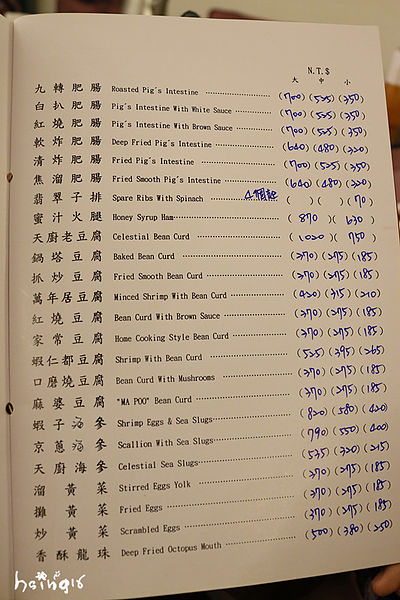 N.T.$
大 中 小
九轉肥腸 Roasted Pig's Intestine (700)(525)(350)
白扒肥腸 Pig's Intestine With White Sauce (700)(525)(350)
紅燒肥腸 Pig's Intestine With Brown Sauce (700)(525)(350)
軟炸肥腸 Deep Fried Pig's Intestine (640)(480)(320)
清炸肥腸 Fried Pig's Intestine (700)(525)(350)
焦溜肥腸 Fried Smooth Pig's Intestine (640)(480)(320)
翡翠子排 Spare Ribs With Spinach 4個起 ( )( )(70)
蜜汁火腿 Honey Syrup Ham (870)(630)
天廚老豆腐 Celestial Bean Curd (1020)(750)
鍋塔豆腐 Baked Bean Curd (370)(275)(185)
抓炒豆腐 Fried Smooth Bean Curd (370)(275)(185)
萬年居豆腐 Minced Shrimp With Bean Curd (420)(315)(210)
紅燒豆腐 Bean Curd With Brown Sauce (370)(275)(185)
家常豆腐 Home Cooking Style Bean Curd (370)(275)(185)
蝦仁都豆腐 Shrimp With Bean Curd (525)(395)(265)
口磨燒豆腐 Bean Curd With Mushrooms (370)(275)(185)
麻婆豆腐 "MA POO" Bean Curd (370)(275)(185)
蝦子海參 Shrimp Eggs & Sea Slugs (820)(580)(420)
京蔥海參 Scallion With Sea Slugs (790)(550)(400)
天廚海參 Celestial Sea Slugs (535)(320)(215)
溜黃菜 Stirred Eggs Yolk (370)(275)(185)
攤黃菜 Fried Eggs (370)(275)(185)
炒黃菜 Scrambled Eggs (370)(275)(185)
香酥龍珠 Deep Fried Octopus Mouth (500)(380)(250)